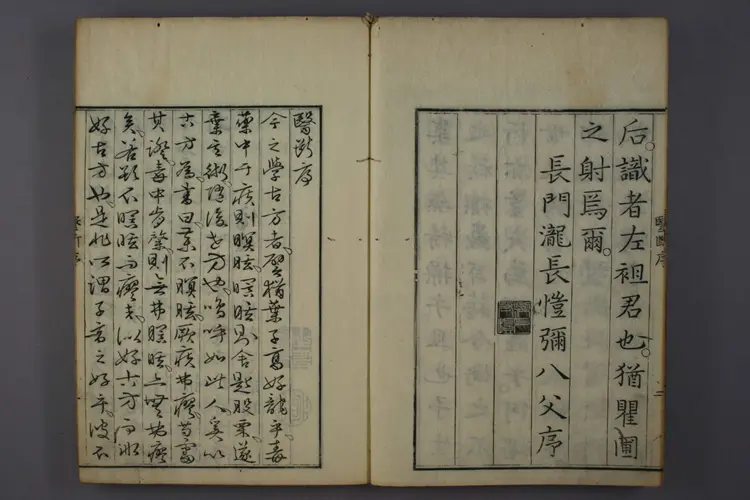 后。識者左袒君也。猶瞿圃
之射焉爾。
長門瀧長愷彌八父序
醫断序
今之學古方者。譬猶葉子高好龍乎。毒
藥中于疾則瞑眩。瞑眩則舍匙股栗。遂
棄其術。
方也。嗚呼如此人奚以
古方為。書曰。藥不瞑眩。厥疾弗瘳。苟當
其證。毒中肯綮。則無弗瞑眩。亦無弗瘳
矣。若欲不瞑眩而瘳者。以好古方而非
好古方也。是非所謂子高之好乎。彼不
醫断序